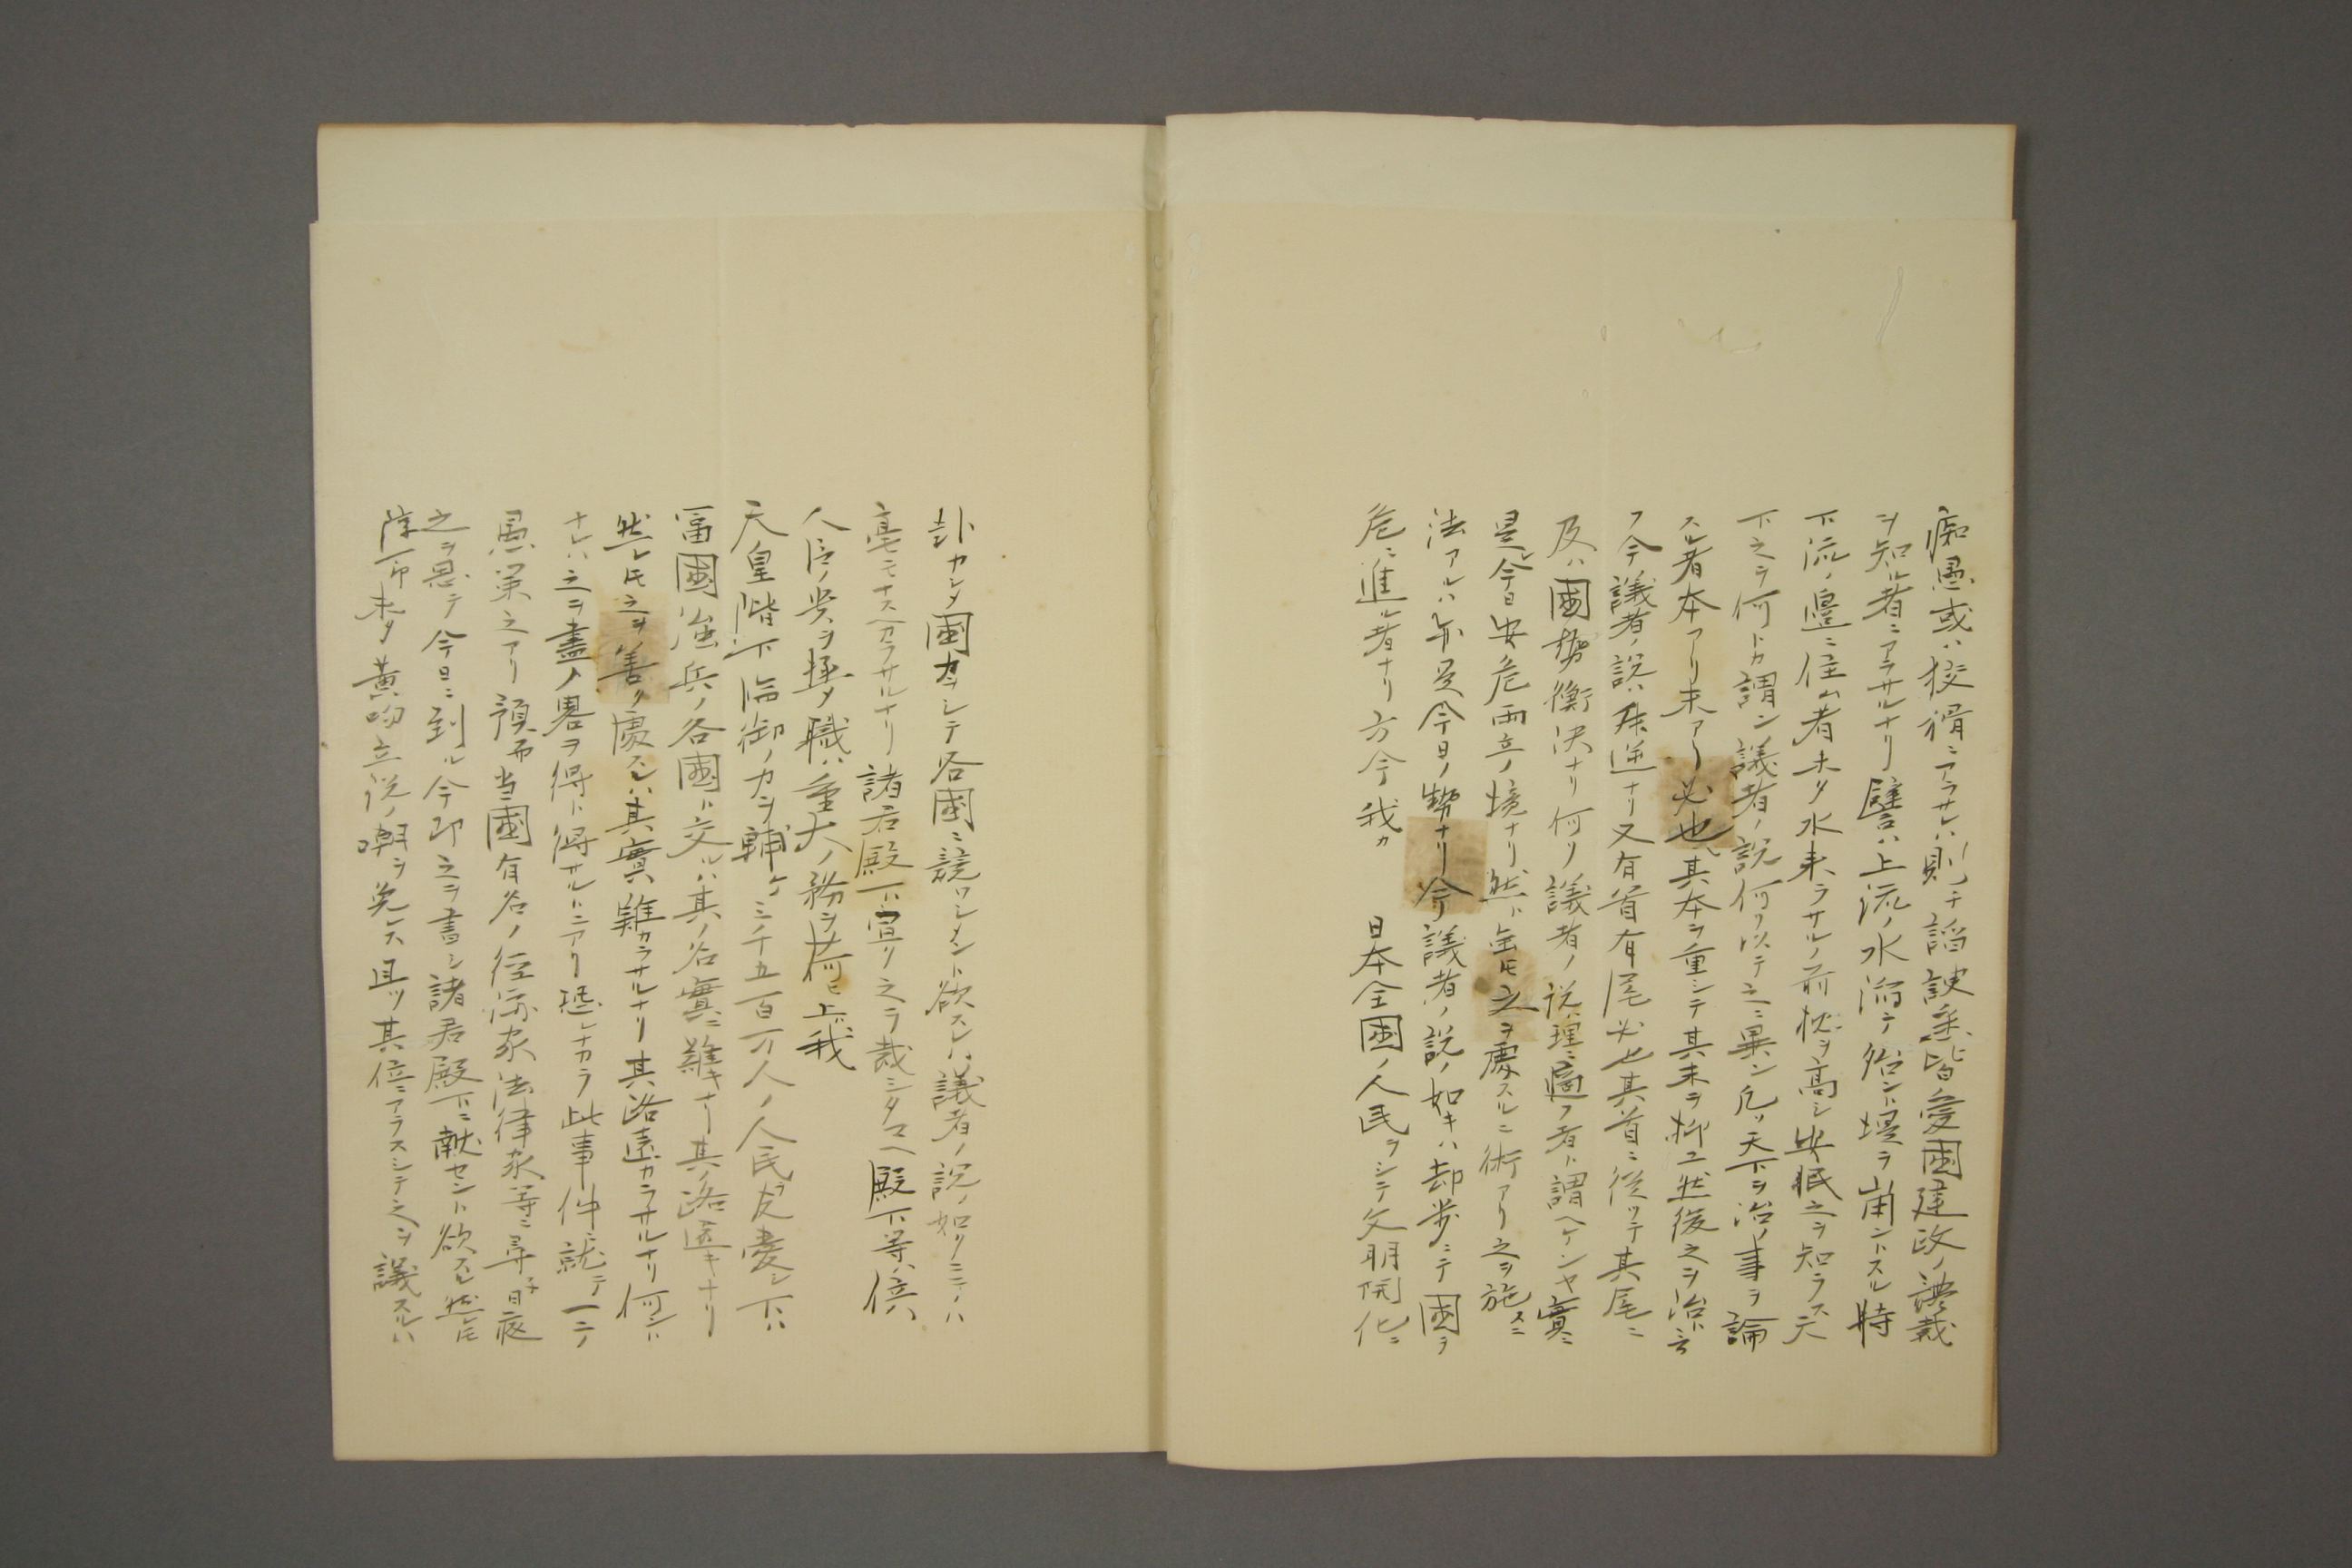 痴愚或ハ狡猾ニアラサレハ則チ諂諛悉皆ノ愛國建政ノ體裁
ヲ知ル者ニアラサルナリ譬ハ上流ノ水滔テ殆ント堤ヲ崩ントスル時
下流ノ邊ニ住ム者未タ水来ラサルノ前枕ヲ高シ安眠之ヲ知ラス天
下之ヲ何トカ謂ン議者ノ説何ヲ以テ之ニ異ン凡ソ天下ヲ治ルノ事ヲ論
スル者本アリ末アリ必也其本ヲ重シテ其末ヲ抑ユ然後之ヲ治ト云
フ今ノ議者ノ説ハ殊逆ナリ又有首有尾必也其首ニ従ツテ其尾ニ
及ハ國勢衡決ナリ何ソ議者ノ説理ニ適フ者ト謂ヘケンヤ實ニ
是レ今日安危両立ノ境ナリ然ト雖モ之ヲ慮スルニ術アリ之ヲ施スニ
法アルハ亦是今日ノ勢ナリ今議者ノ説ノ如キハ却歩ニテ國ヲ
危ニ進ル者ナリ方今我カ 日本全國ノ人民ヲシテ文明開化ニ
赴カシメ國力ヲシテ各國ニ競ワシメント欲スレハ議者ノ説ノ如クニテハ
毫モナスヘカラサルナリ諸君殿下宜ク之ヲ裁シタマヘ殿下等ハ倍
人臣ノ栄ヲ極メ職ハ重大ノ務ヲ荷ヒ上ハ我
天皇階下臨御ノ力ヲ輔ケ三千五百万人ノ人民ヲ友愛シ下ハ
富國強兵ノ各國ト交ルハ其ノ名實ニ難キナリ其ノ路遠キナリ
然レモ之ヲ善ク慮スレハ其實難カラサルナリ其路遠カラサルナリ何ントナレハ
之ヲ盡ノ畧ヲ得ト得サルトニアリ恐レナカラ此事件ニ就テ一二ノ
愚策之アリ預而当國有名ノ経済家法律家等ニ尋子日夜
之ヲ思テ今日ニ到ル今即之ヲ書シ諸君殿下ニ献セント欲スル然レモ
隆一郎未タ黄吻立説ノ嘲ヲ免レス且ツ其位ニアラスシテ之ヲ議スルハ